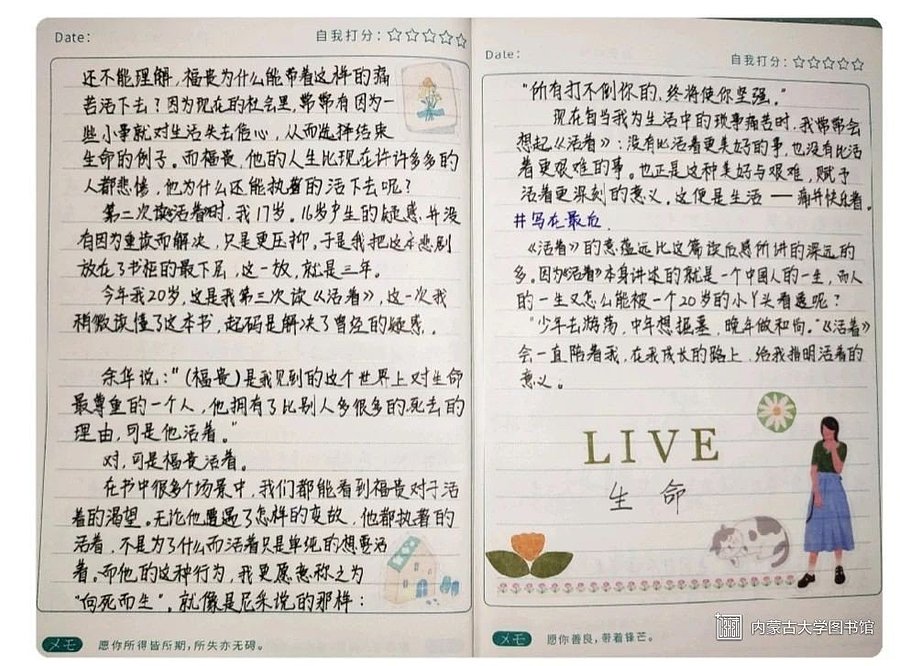 Date:
自我打分:☆☆☆☆☆
还不能理解,福贵为什么能带着这样的痛
苦活下去?因为现在的社会里,常常有因为一
些小事就对生活失去信心,从而选择结束
生命的例子。而福贵,他的人生比现在许许多多的
人都悲惨,他为什么还能执著的活下去呢?
第二次读《活着》时,我17岁。16岁产生的疑惑并没
有因为重读而解决,只是更压抑,于是我把这本悲剧
放在了书柜的最下层,这一放,就是三年。
今年我20岁,这是我第三次读《活着》,这一次我
稍微读懂了这本书,起码是解决了曾经的疑惑。
余华说:"(福贵)是我见到的这个世界上对生命
最尊重的一个人,他拥有了比别人多很多的死去的
理由,可是他活着。"
对,可是福贵活着。
在书中很多个场景中,我们都能看到福贵对于活
着的渴望。无论他遭遇了怎样的变故,他都执著的
活着,不是为了什么而活着只是单纯的想要活
着。而他的这种行为,我更愿意称之为
"向死而生"。就像是尼采说的那样:
メモ 愿你所得皆所期,所失亦无碍。
Date:
自我打分:☆☆☆☆☆
"所有打不倒你的,终将使你坚强。"
现在每当我为生活中的琐事痛苦时,我常常会
想起《活着》:没有比活着更美好的事,也没有比活
着更艰难的事。也正是这种美好与艰难,赋予
活着更深刻的意义。这便是生活——痛并快乐着。
#写在最后
《活着》的意蕴远比这篇读后感所讲的深远的
多。因为《活着》本身讲述的就是一个中国人的一生,而人
的一生又怎么能被一个20岁的小丫头看透呢?
"少年去游荡,中年想掘墓,晚年做和尚。"《活着》
会一直陪着我,在我成长的路上,给我指明活着的
意义。
LIVE
生命
メモ 愿你善良,带着锋芒。
内蒙古大学图书馆